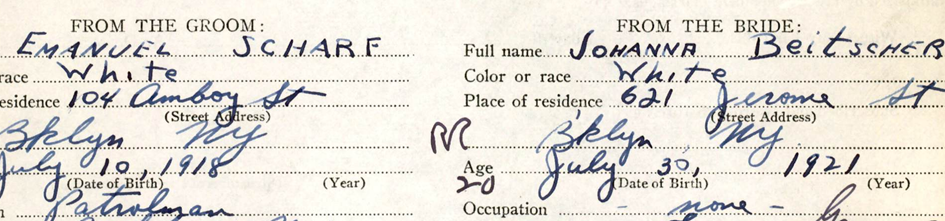 FROM THE GROOM:
EMANUEL SCHARF
race White
esidence 104 Amboy St
(Street Address)
Bklyn NY
July 10, 1918
(Date of Birth) (Year)
n Patrolman
FROM THE BRIDE:
Full name JOHANNA BeitscheR
Color or race White
Place of residence 621 Jerome St
(Street Address)
RR B'klyn NY
Age July 30, 1921
20 (Date of Birth) (Year)
Occupation - none -